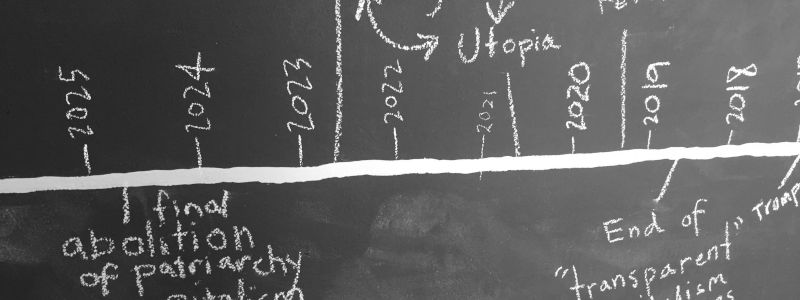 Utopia
2025
2024
2023
2022
2021
2020
2019
2018
final
abolition
of patriarchy
End of
"transparent"